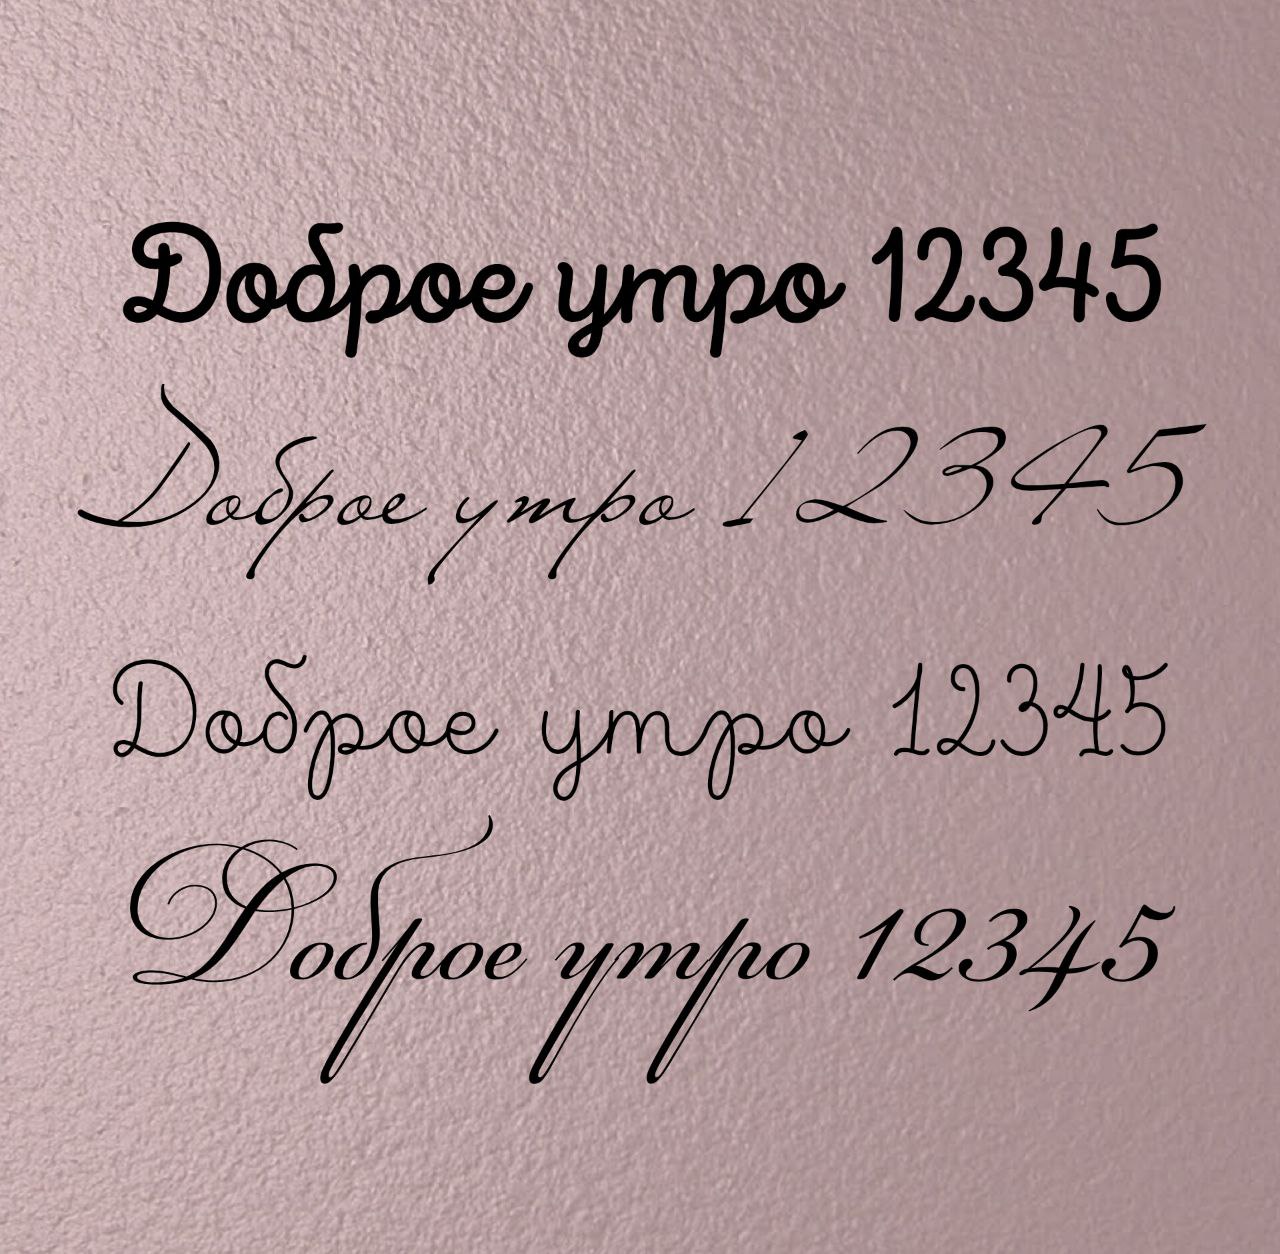 Доброе утро 12345
Доброе утро 12345
Доброе утро 12345
Доброе утро 12345